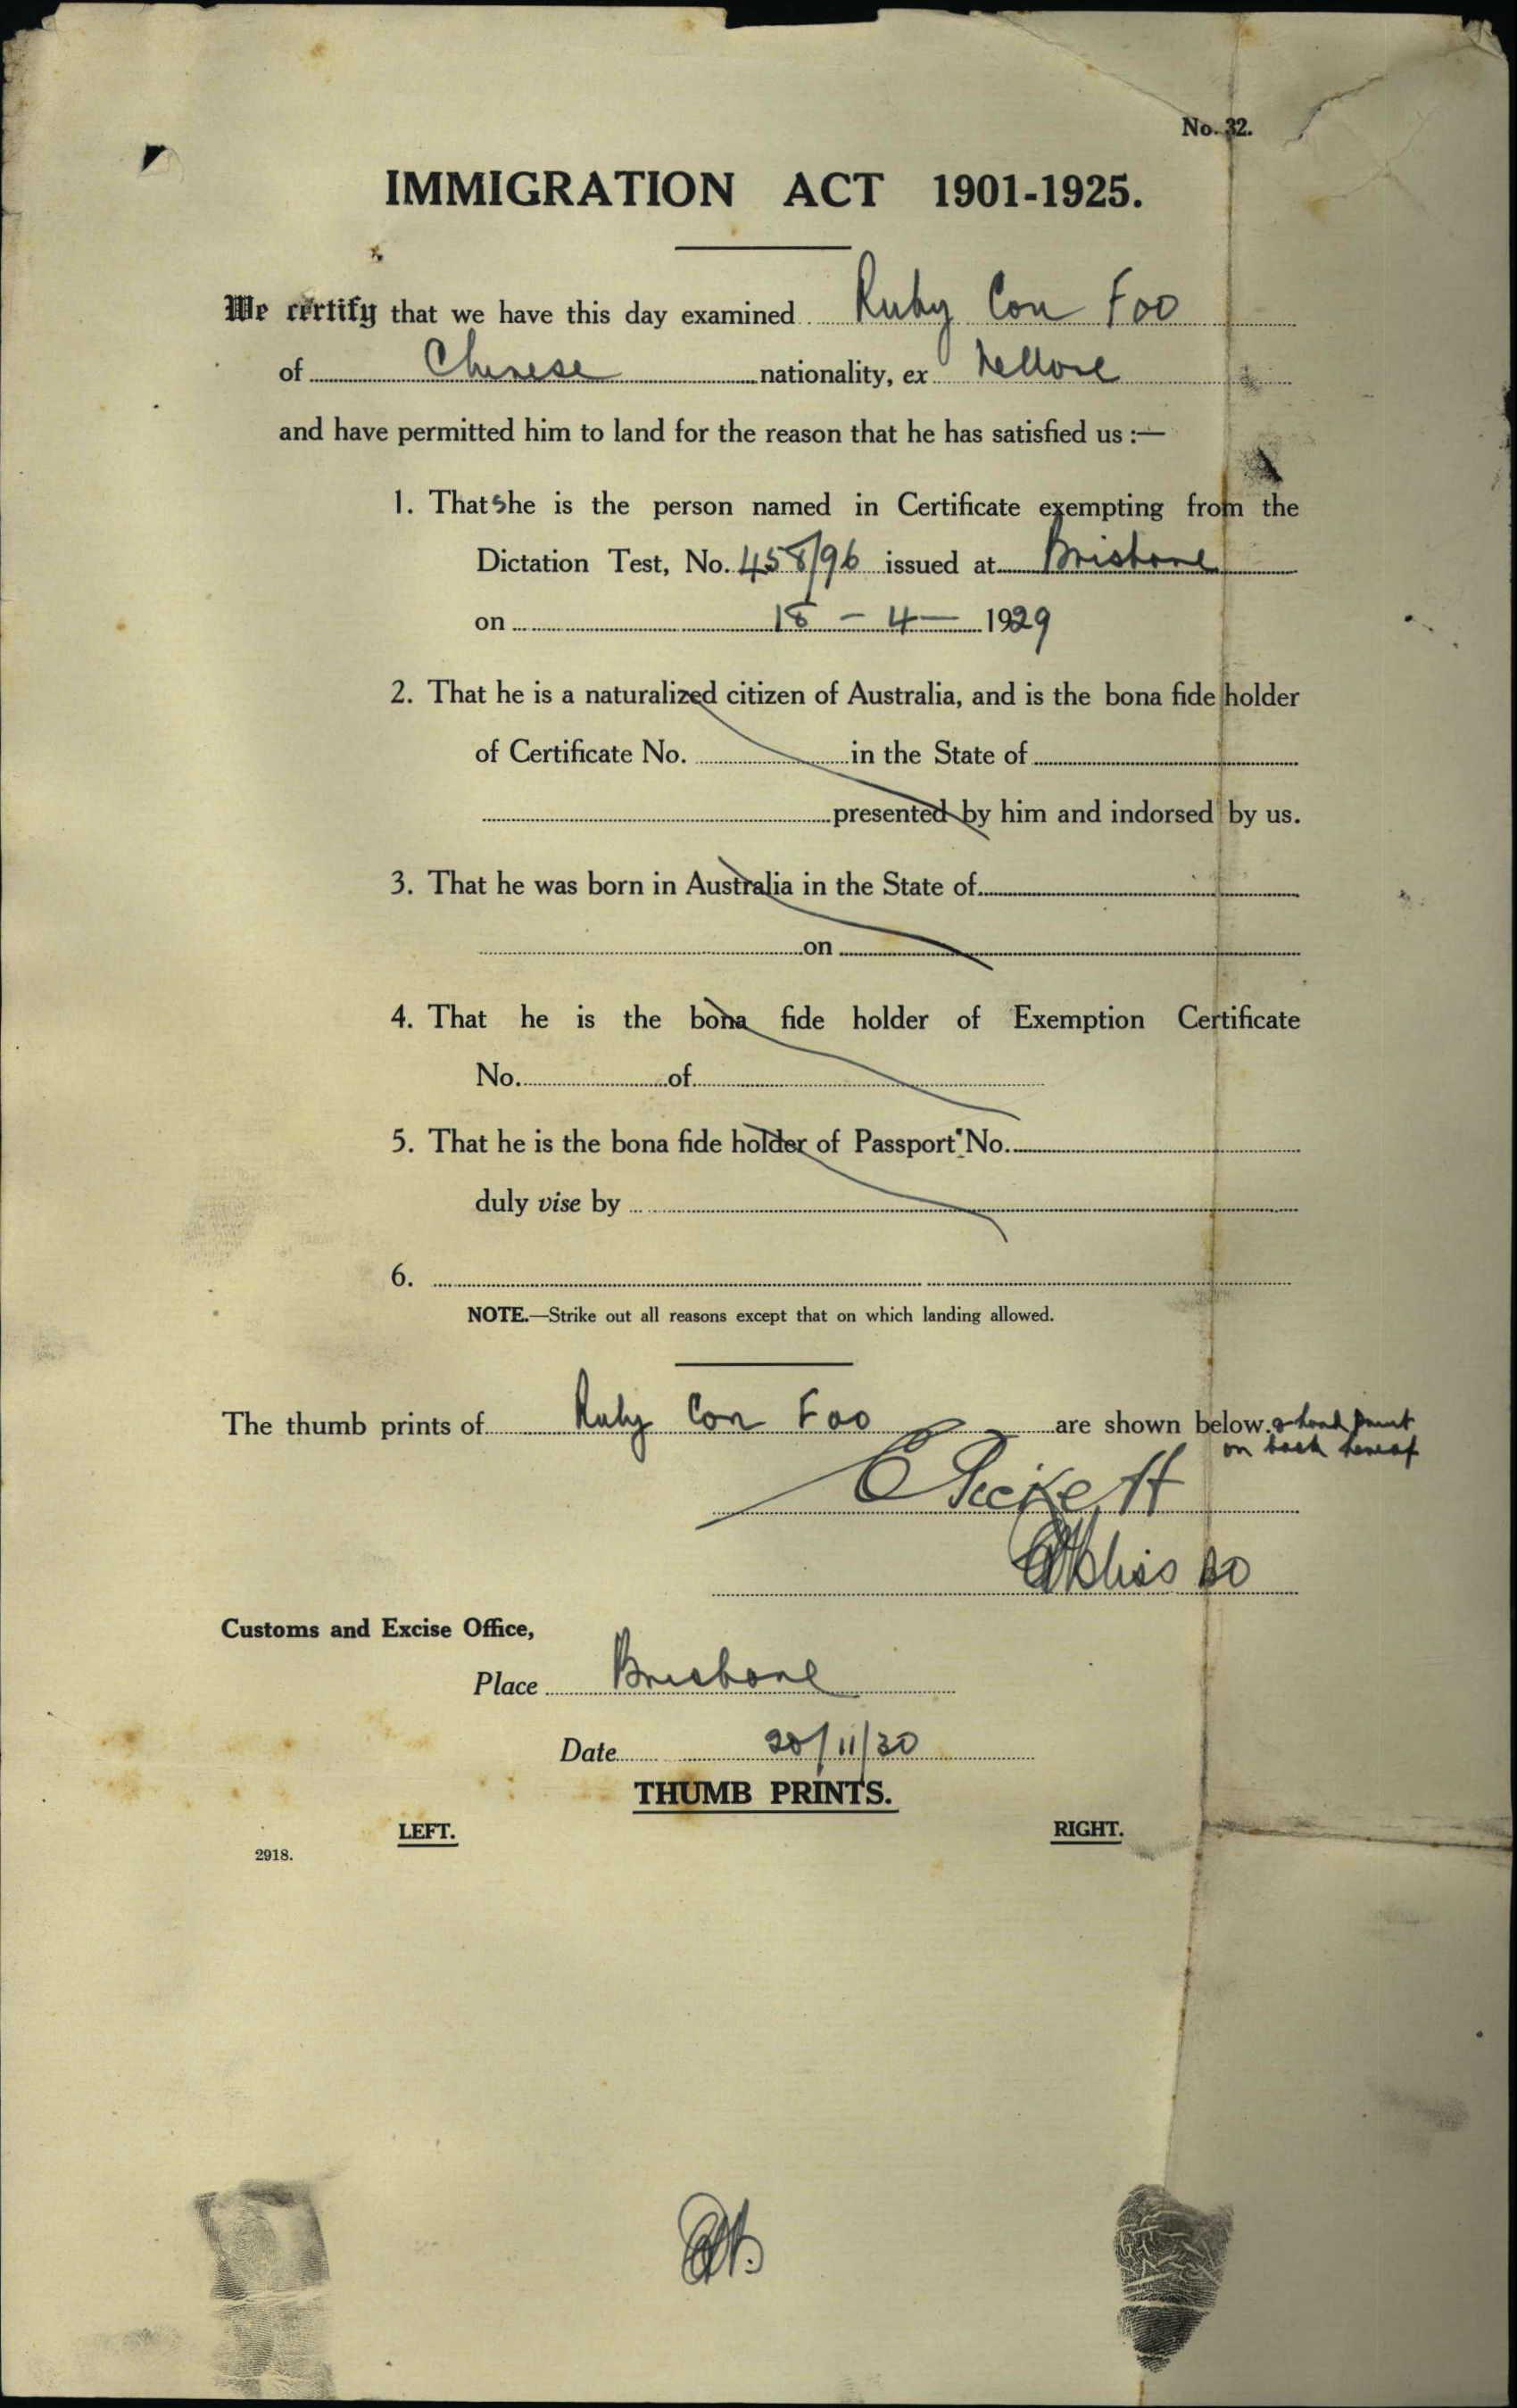 No. 32.
IMMIGRATION ACT 1901-1925.
We certify that we have this day examined Ruby Con Foo
of Chinese nationality, ex Nellore
and have permitted him to land for the reason that he has satisfied us :—
1. That she is the person named in Certificate exempting from the
Dictation Test, No. 458/96 issued at Brisbane
on 18 - 4 - 1929
2. That he is a naturalized citizen of Australia, and is the bona fide holder
of Certificate No. in the State of
presented by him and indorsed by us.
3. That he was born in Australia in the State of
on
4. That he is the bona fide holder of Exemption Certificate
No. of
5. That he is the bona fide holder of Passport No.
duly vise by
6.
NOTE.—Strike out all reasons except that on which landing allowed.
The thumb prints of Ruby Con Foo are shown below. & hand print
on back hereof
C Pickett
Customs and Excise Office,
Place Brisbane
Date 20/11/30
THUMB PRINTS.
LEFT. RIGHT.
2918.